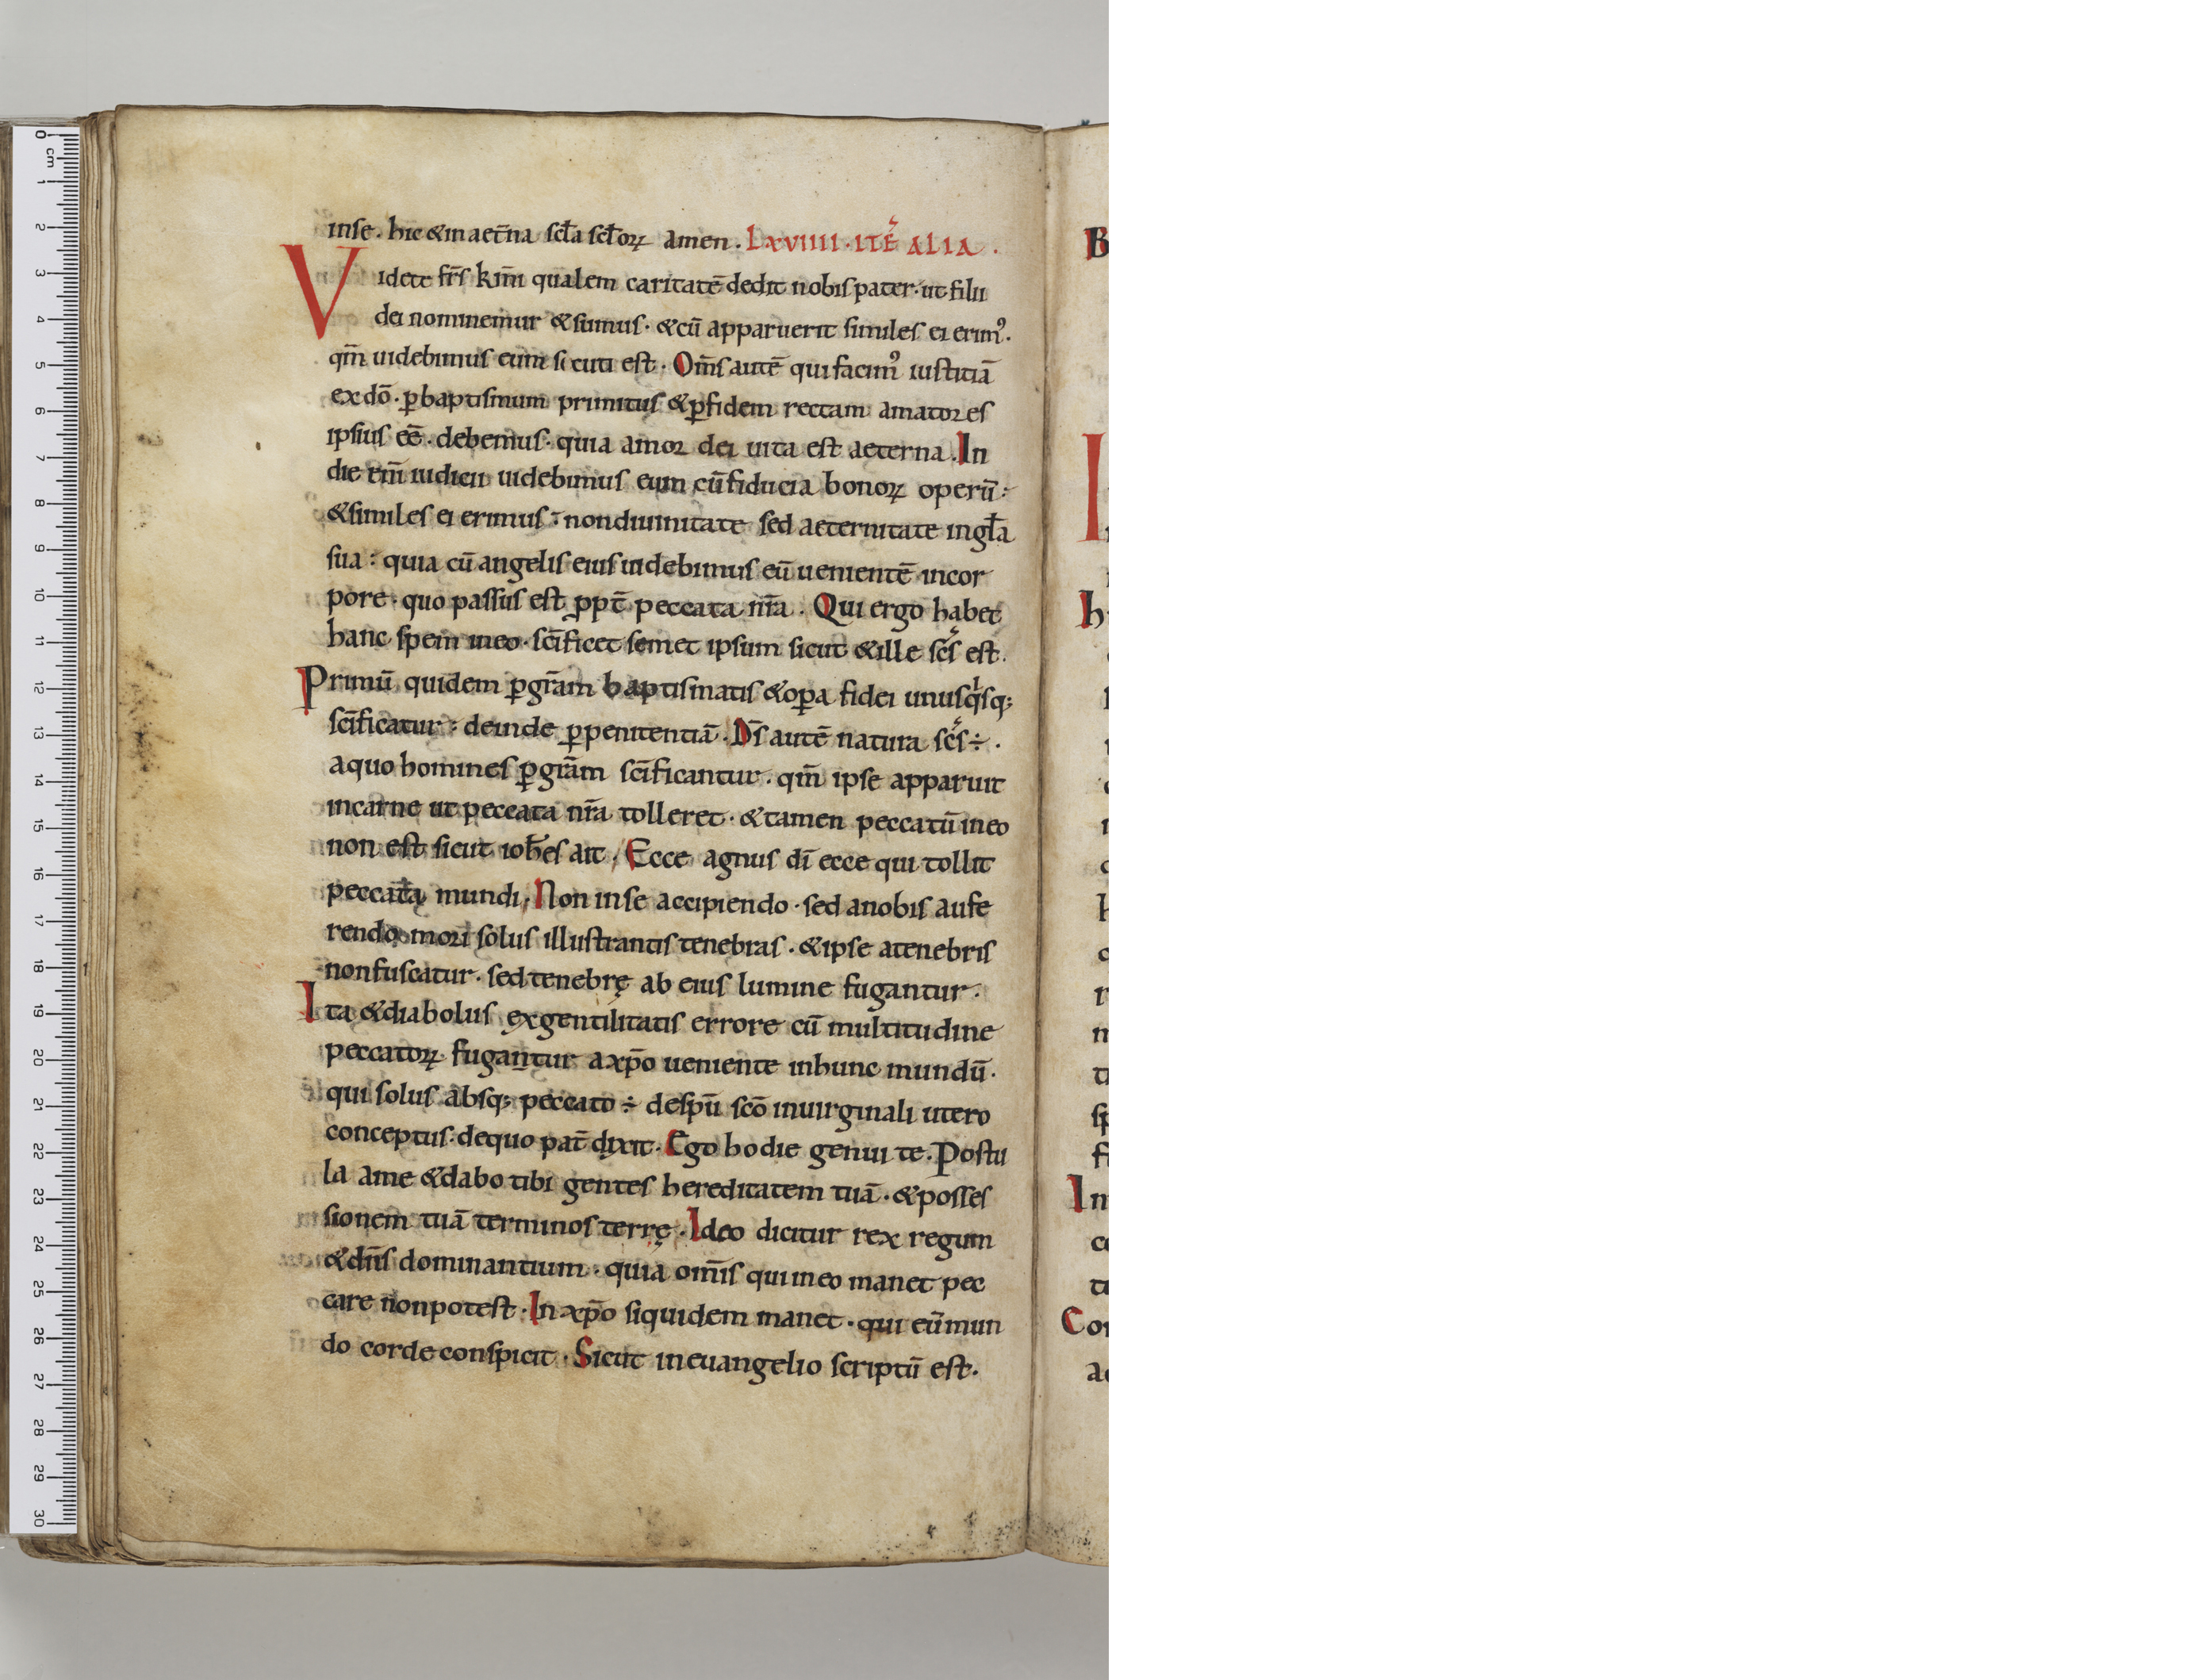 inse. hic &in aet̄na scła scłoꝝ amen. LXVIIII. ITĒ ALIA.
Videte fr̄s km̄i qualem caritatē dedit nobis pater. ut filii
dei nominemur &sumus. &cū apparuerit similes ei erimꝰ.
qm̄ uidebimus eum sicuti est. Om̄s autē qui facimꝰ iustitiā
ex dō. ꝑ baptismum primitus &ꝑ fidem rectam amatores
ipsius eē. debemus. quia amor dei uita est aeterna. In
die em̄ iudicii uidebimus eum cū fiducia bonoꝝ operū:
&similes ei erimus: non diuinitate sed aeternitate in gła
sua: quia cū angelis eius uidebimus eū uenientē incor
pore. quo passus est ꝓpt̄ peccata nr̄a. Qui ergo habet
hanc spem in eo. sc̄ificet semet ipsum sicut &ille sc̄s est.
Primū quidem ꝑ gr̄am baptismatis &oꝑa fidei unusqⁱsq;
sc̄ificatur: deinde ꝑ penitentiā. Ds̄ autē natura sc̄s ÷.
a quo homines ꝑ gr̄am sc̄ificantur. qm̄ ipse apparuit
in carne ut peccata nr̄a tolleret. &tamen peccatū in eo
non est sicut ioh̄es ait. Ecce agnus dī ecce qui tollit
peccata mundi. Non in se accipiendo. sed a nobis aufe
rendo. mori solus illustrantis tenebras. &ipse a tenebris
non fuscatur. sed tenebrę ab eius lumine fugantur.
Ita &diabolus ex gentilitatis errore cū multitudine
peccatoꝝ fugantur a xp̄o ueniente in hunc mundū.
qui solus absq; peccato ÷ de spū scō in uirginali utero
conceptus. de quo pat̄ dixit. Ego hodie genui te. Postu
la a me &dabo tibi gentes hereditatem tuā. &posses
sionem tuā terminos terrę. Ideo dicitur rex regum
&dn̄s dominantium. quia om̄is qui in eo manet pec
care non potest. In xp̄o siquidem manet. qui eū mun
do corde conspicit. Sicut in euangelio scriptū est.